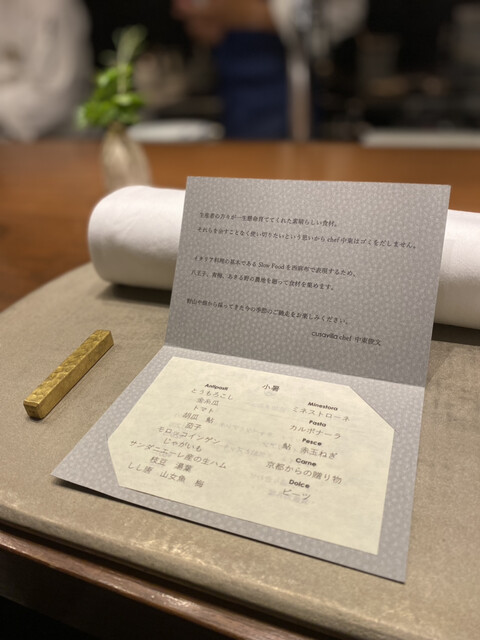 生産者の方々が一生懸命育ててくれた素晴らしい食材。
それらを余すことなく使い切りたいという思いから chef 中東はゴミをだしません。
イタリア料理の基本である Slow Food を西麻布で表現するため、
八王子、青梅、あきる野の農地を廻って食材を集めます。
野山や畑から採ってきた今の季節のご馳走をお楽しみください。
curavilla chef 中東俊文
小暑
Antipasti
とうもろこし
金糸瓜
トマト
胡瓜 鮎
茄子
モロッコインゲン
じゃがいも
サンダニエーレ産の生ハム
枝豆 湯葉
しし唐 山女魚 梅
Minestora
ミネストローネ
Pasta
カルボナーラ
Pesce
鮎 赤玉ねぎ
Carne
京都からの贈り物
Dolce
ビーツ